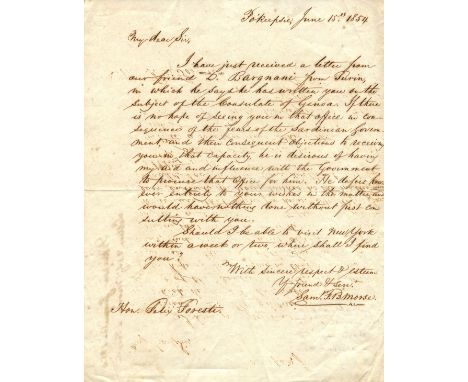 Po'keepsie, June 15th 1854
My dear Sir,
I have just received a letter from
our friend Dr. Bargnani from Turin,
in which he says he has written you on the
subject of the Consulate of Genoa. If there
is no hope of seeing you in that office in con-
sequence of the fears of the Sardinian Govern-
ment and their consequent objections to receiving
you in that capacity, he is desirous of having
my aid and influence with the Government
to procure that office for him. He defers how-
ever entirely to your wishes in the matter, and
would have nothing done without first con-
sulting with you.
Should I be able to visit New York
within a week or two, where shall I find
you?
With sincere respect & esteem
Yr friend & Servt
Saml. F. B. Morse.
Hon. Felix Foresti.